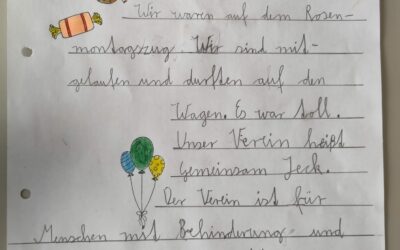 Wir waren auf dem Rosen-
montagszug. Wir sind mit-
gelaufen und durften auf den
Wagen. Es war toll.
Unser Verein heißt
gemeinsam Jeck.
Der Verein ist für
Menschen mit Behinderung und